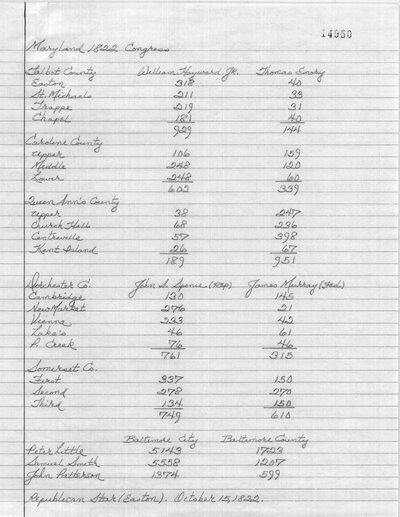 14950
Maryland 1822 Congress
Talbot County William Hayward Jr. Thomas Emory
Easton 318 40
St. Michaels 211 33
Trappe 219 31
Chapel 181 40
929 144
Caroline County
Upper 106 159
Middle 248 120
Lower 248 60
602 339
Queen Ann's County
Upper 38 247
Church Hill 68 236
Centreville 57 398
Kent Island 26 67
189 951
Dorchester Co. John S. Spence (Rep) James Murray (Fed)
Cambridge 130 145
New Market 276 21
Vienna 233 42
Lake's 46 61
P. Creek 76 46
761 315
Somerset Co.
First 337 150
Second 278 270
Third 134 150
749 610
Baltimore City Baltimore County
Peter Little 5143 1723
Samuel Smith 5558 1207
John Patterson 1374 599
Republican Star (Easton). October 15, 1822.